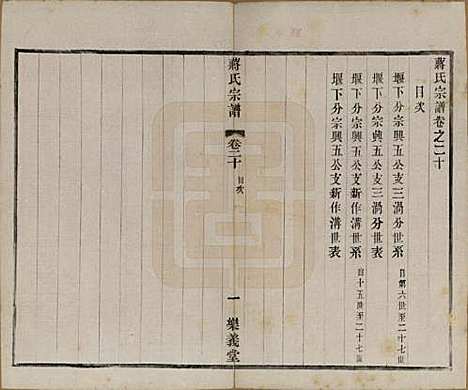 蔣氏宗譜卷之二十
目次
堰下分宗興五公支三渦分世系 自第六世至二十七世
堰下分宗興五公支三渦分世表
堰下分宗興五公支新作溝世系 自十五世至二十七世
堰下分宗興五公支新作溝世表
蔣氏宗譜
卷二十
目次
一
樂義堂